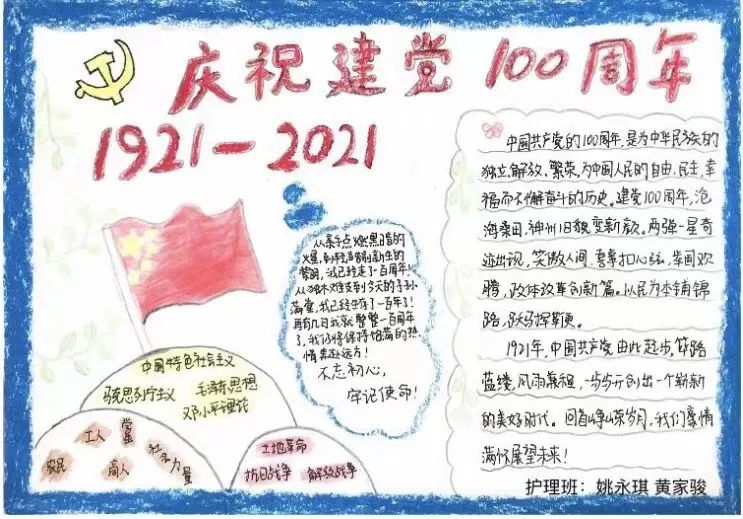 庆祝建党100周年
1921-2021
从亲手点燃黑暗的
火爆,到轻声唱新生的
黎明,我已经走了一百周年!
从独木难支到今天的子孙
满堂,我已经生存了一百年了!
再有几日我就整整一百周年
了,我仍将保持饱满的热
情奔赴远方!
不忘初心,
牢记使命!
中国共产党的100周年,是为中华民族的
独立解放、繁荣,为中国人民的自由、民主、幸
福而不懈奋斗的历史。建党100周年,沧
海桑田,神州旧貌变新颜。两弹一星奇
迹出现,笑傲人间,喜事扣心弦,举国欢
腾,政体改革创新篇。以民为本铺锦
路,跃马挥鞭。
1921年,中国共产党由此起步,筚路
蓝缕,风雨兼程,一步步开创出一个崭新
的美好时代。回首峥嵘岁月,我们豪情
满怀展望未来!
护理班:姚永琪 黄家骏
中国特色社会主义
马克思列宁主义 毛泽东思想
邓小平理论
工人 党员
农民 商人 社会力量
土地革命
抗日战争 解放战争